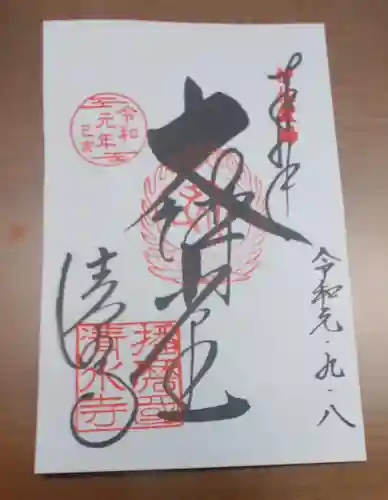 奉拝
令和元・九・八
大講堂
清水寺
令和
元年
己亥
清水寺